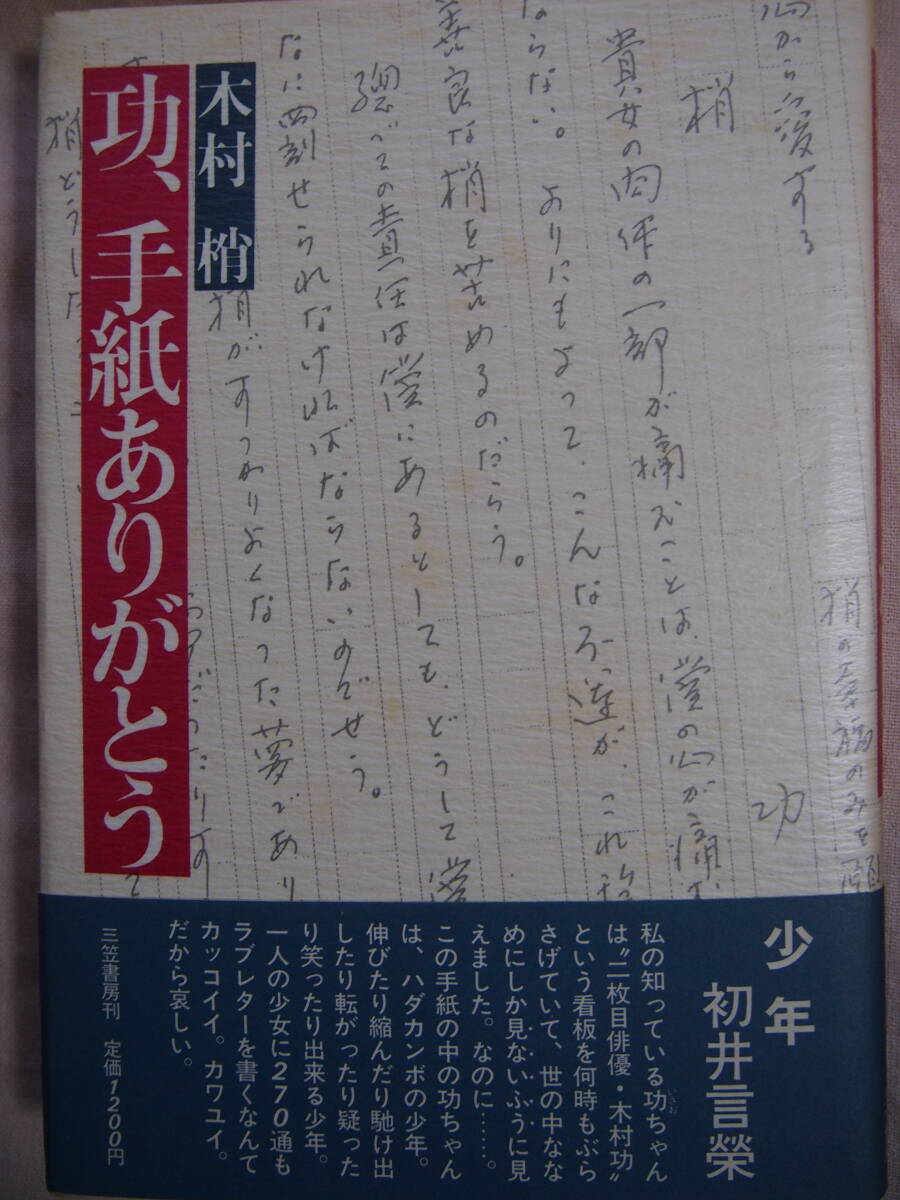 功、手紙ありがとう
木村 梢
梢の幸福のみを願
心から愛する
功
梢
貴女の肉体の一部が痛むことは、僕の心が痛む
ならない。よりにもよって、こんな不運が、これ程
善良な梢を苦めるのだらう。
總べての責任は僕にあるとしても、どうして僕
せられなければならないのでせう。
梢がすつかりよくなった夢であり
梢どうした
少年
初井言榮
私の知っている功ちゃん
いさお
は〝二枚目俳優・木村功〟
という看板を何時もぶら
さげていて、世の中なな
めにしか見ないふうに見
えました。なのに……。
この手紙の中の功ちゃん
は、ハダカンボの少年。
伸びたり縮んだり馳け出
したり転がったり疑った
り笑ったり出来る少年。
一人の少女に270通も
ラブレターを書くなんて
カッコイイ。カワユイ。
だから哀しい。
三笠書房刊 定価1200円